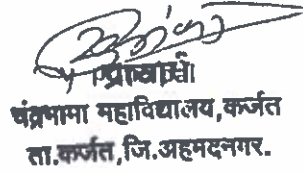 प्राचार्य
चंद्रभामा महाविद्यालय,कर्जत
ता.कर्जत,जि.अहमदनगर.